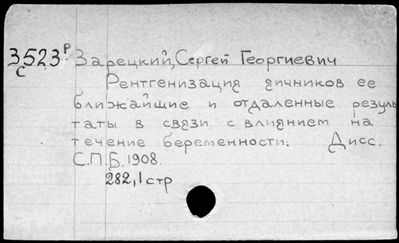 3523 Р Зарецкий, Сергей Георгиевич
С
Рентгенизация яичников ее
ближайшие и отдаленные резуль
таты в связи с влиянием на
течение беременности. Дисс.
С.П.Б. 1908.
282,1 стр